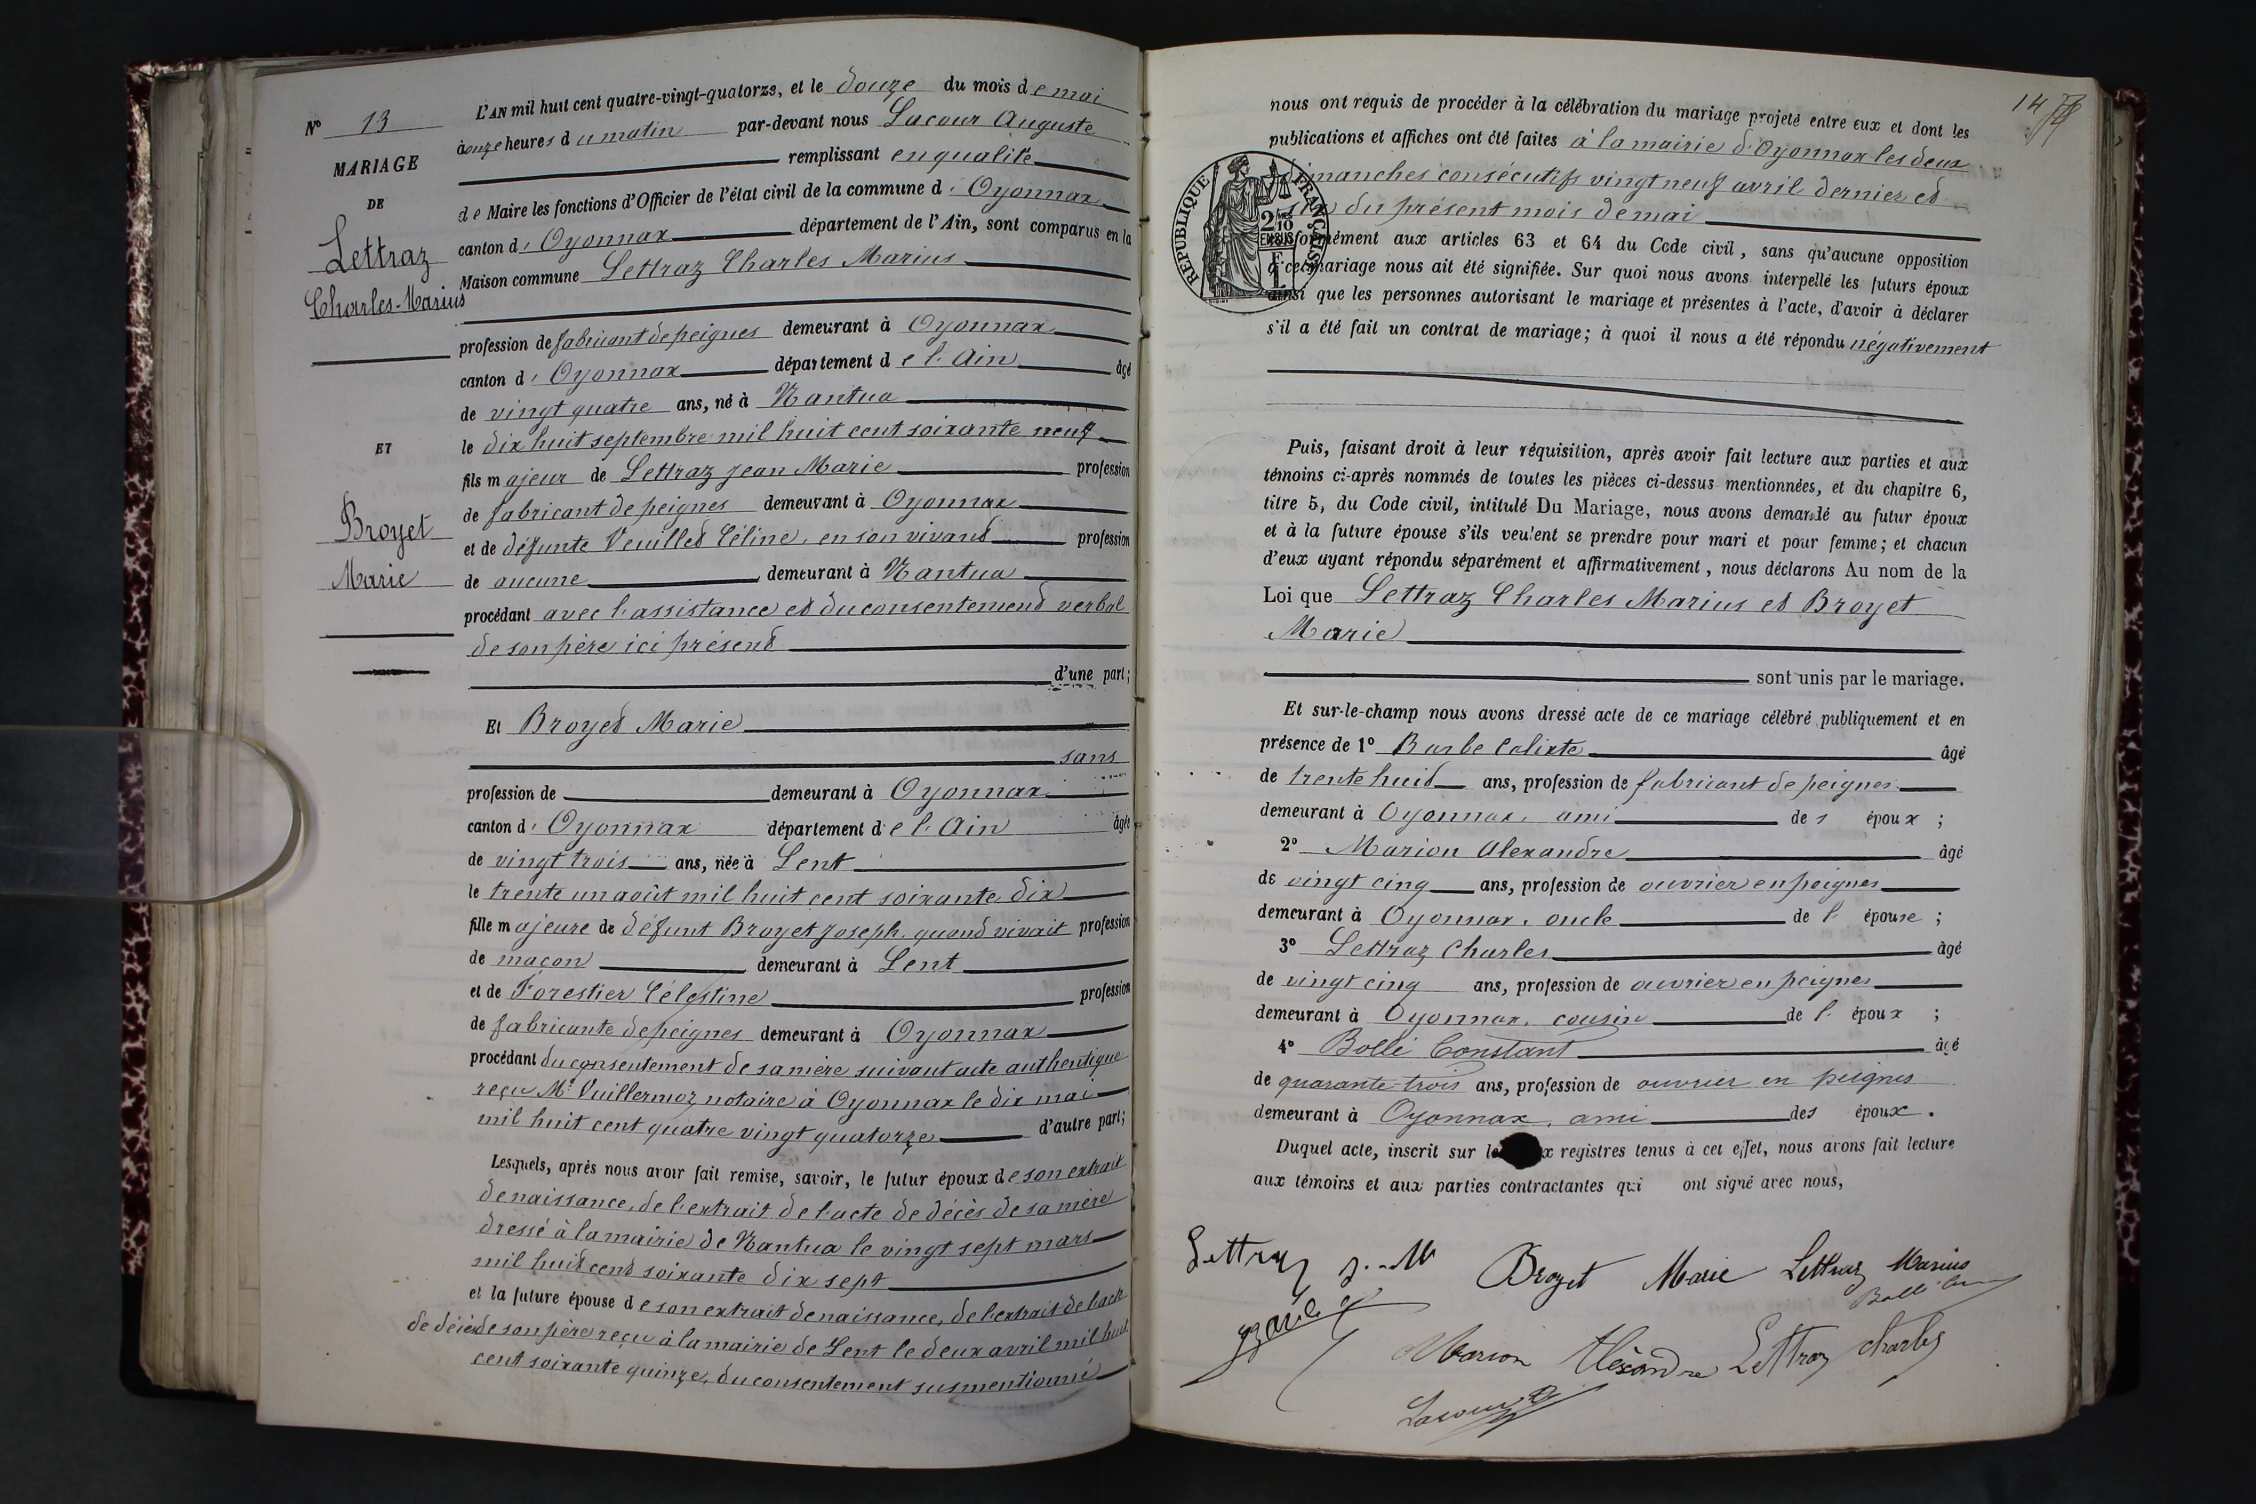 N° 13
MARIAGE
DE
Lettraz
Charles-Marius
ET
Broyet
Marie
L'AN mil huit cent quatre-vingt-quatorze, et le douze du mois de mai
à onze heures du matin par-devant nous Lacour Auguste
remplissant en qualité
de Maire les fonctions d'Officier de l'état civil de la commune d'Oyonnax
canton d'Oyonnax département de l'Ain, sont comparus en la
Maison commune Lettraz Charles Marius
profession de fabricant de peignes demeurant à Oyonnax
canton d'Oyonnax département de l'Ain âgé
de vingt quatre ans, né à Nantua
le dix huit septembre mil huit cent soixante neuf
fils majeur de Lettraz Jean Marie profession
de fabricant de peignes demeurant à Oyonnax
et de défunte Veuillet Céline, en son vivant profession
de aucune demeurant à Nantua
procédant avec l'assistance et du consentement verbal
de son père ici présent
d'une part;
Et Broyet Marie
sans
profession de demeurant à Oyonnax
canton d'Oyonnax département de l'Ain âgée
de vingt trois ans, née à Lent
le trente un août mil huit cent soixante dix
fille majeure de défunt Broyet Joseph, quand vivait profession
de maçon demeurant à Lent
et de Forestier Célestine profession
de fabricante de peignes demeurant à Oyonnax
procédant du consentement de sa mère suivant acte authentique
reçu Me Vuillermoz notaire à Oyonnax le dix mai
mil huit cent quatre vingt quatorze d'autre part;
Lesquels, après nous avoir fait remise, savoir, le futur époux de son extrait
de naissance, de l'extrait de l'acte de décès de sa mère
dressé à la mairie de Nantua le vingt sept mars
mil huit cent soixante dix sept
et la future épouse de son extrait de naissance, de l'extrait de l'acte
de décès de son père reçu à la mairie de Lent le deux avril mil huit
cent soixante quinze, du consentement susmentionné
14
nous ont requis de procéder à la célébration du mariage projeté entre eux et dont les
publications et affiches ont été faites à la mairie d'Oyonnax les deux
dimanches consécutifs vingt neuf avril dernier et
six du présent mois de mai
RÉPUBLIQUE FRANÇAISE
conformément aux articles 63 et 64 du Code civil, sans qu'aucune opposition
à ce mariage nous ait été signifiée. Sur quoi nous avons interpellé les futurs époux
ainsi que les personnes autorisant le mariage et présentes à l'acte, d'avoir à déclarer
s'il a été fait un contrat de mariage; à quoi il nous a été répondu négativement
Puis, faisant droit à leur réquisition, après avoir fait lecture aux parties et aux
témoins ci-après nommés de toutes les pièces ci-dessus mentionnées, et du chapitre 6,
titre 5, du Code civil, intitulé Du Mariage, nous avons demandé au futur époux
et à la future épouse s'ils veulent se prendre pour mari et pour femme; et chacun
d'eux ayant répondu séparément et affirmativement, nous déclarons Au nom de la
Loi que Lettraz Charles Marius et Broyet
Marie
sont unis par le mariage.
Et sur-le-champ nous avons dressé acte de ce mariage célébré publiquement et en
présence de 1° Barbe Calixte âgé
de trente huit ans, profession de fabricant de peignes
demeurant à Oyonnax, ami des époux;
2° Marion Alexandre âgé
de vingt cinq ans, profession de ouvrier en peignes
demeurant à Oyonnax, oncle de l'épouse;
3° Lettraz Charles âgé
de vingt cinq ans, profession de ouvrier en peignes
demeurant à Oyonnax, cousin de l'époux;
4° Bolli Constant âgé
de quarante-trois ans, profession de ouvrier en peignes
demeurant à Oyonnax, ami des époux.
Duquel acte, inscrit sur les x registres tenus à cet effet, nous avons fait lecture
aux témoins et aux parties contractantes qui ont signé avec nous,
Lettraz J.-M Broyet Marie Lettraz Marius
Bolli
Marion Alexandre Lettraz Charles
Lacour